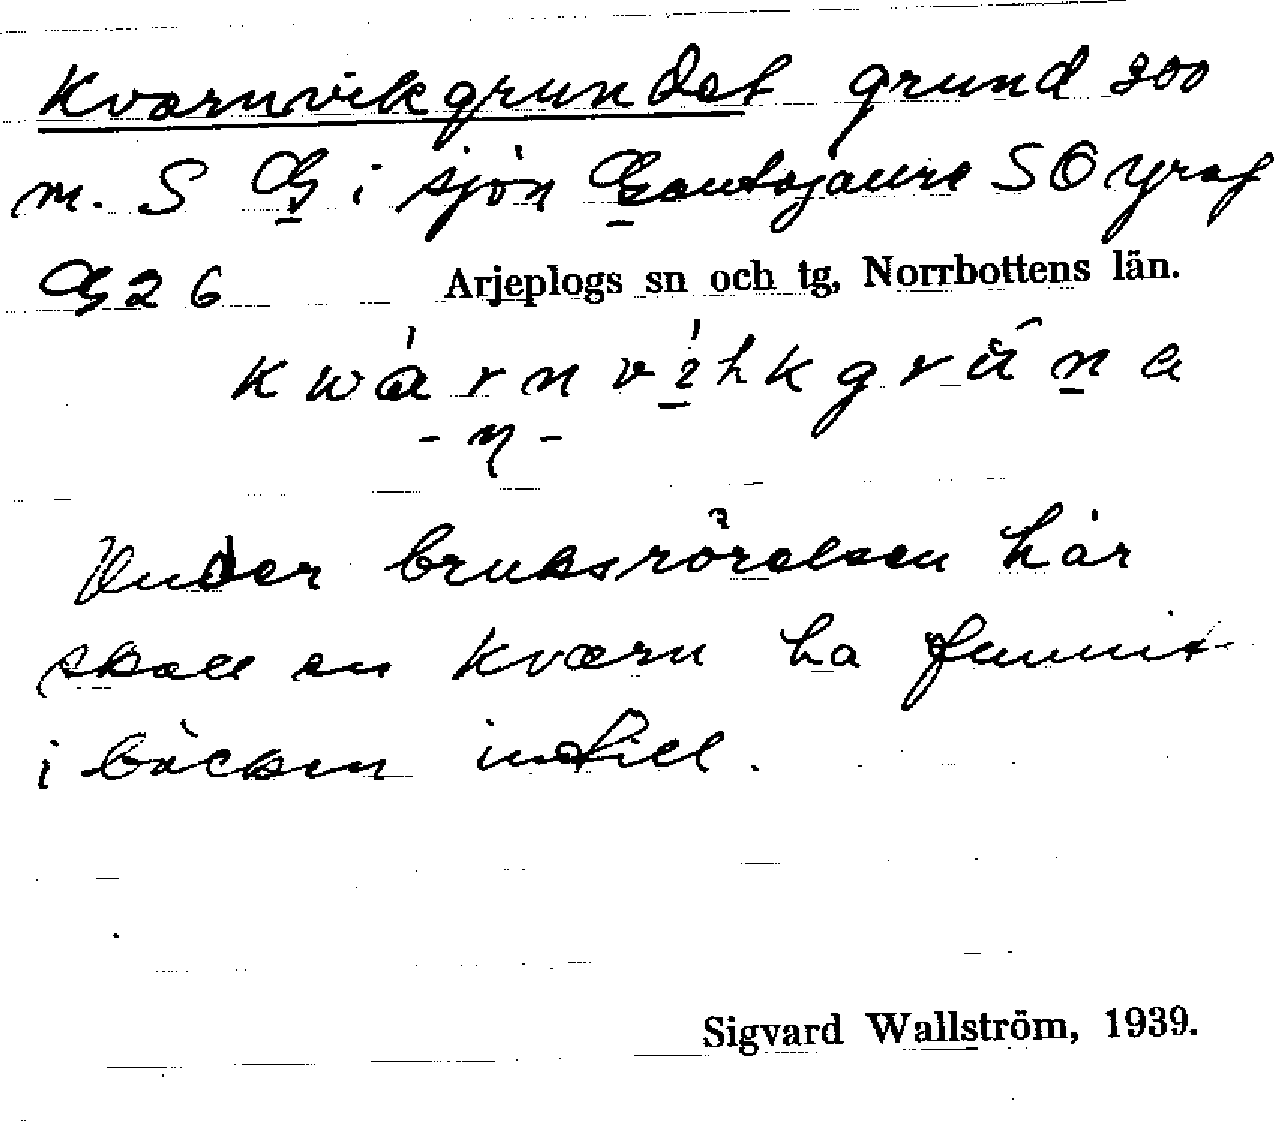 Kvarnvikgrundet grund 200
m. S G i sjön Gautojaure SO
G 2 6 Arjeplogs sn och tg, Norrbottens län.
kwàrnvìhkgrṷna
- η -
Under bruksrörelsen här
skall en kvarn ha funnit
i bäcken intill.
Sigvard Wallström, 1939.